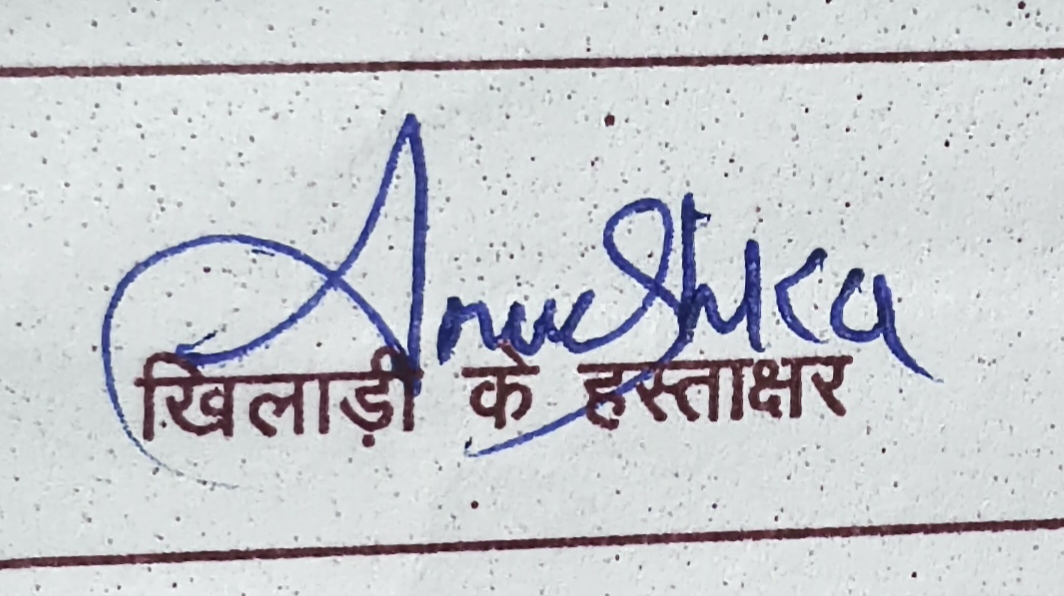 Anushka
खिलाड़ी के हस्ताक्षर